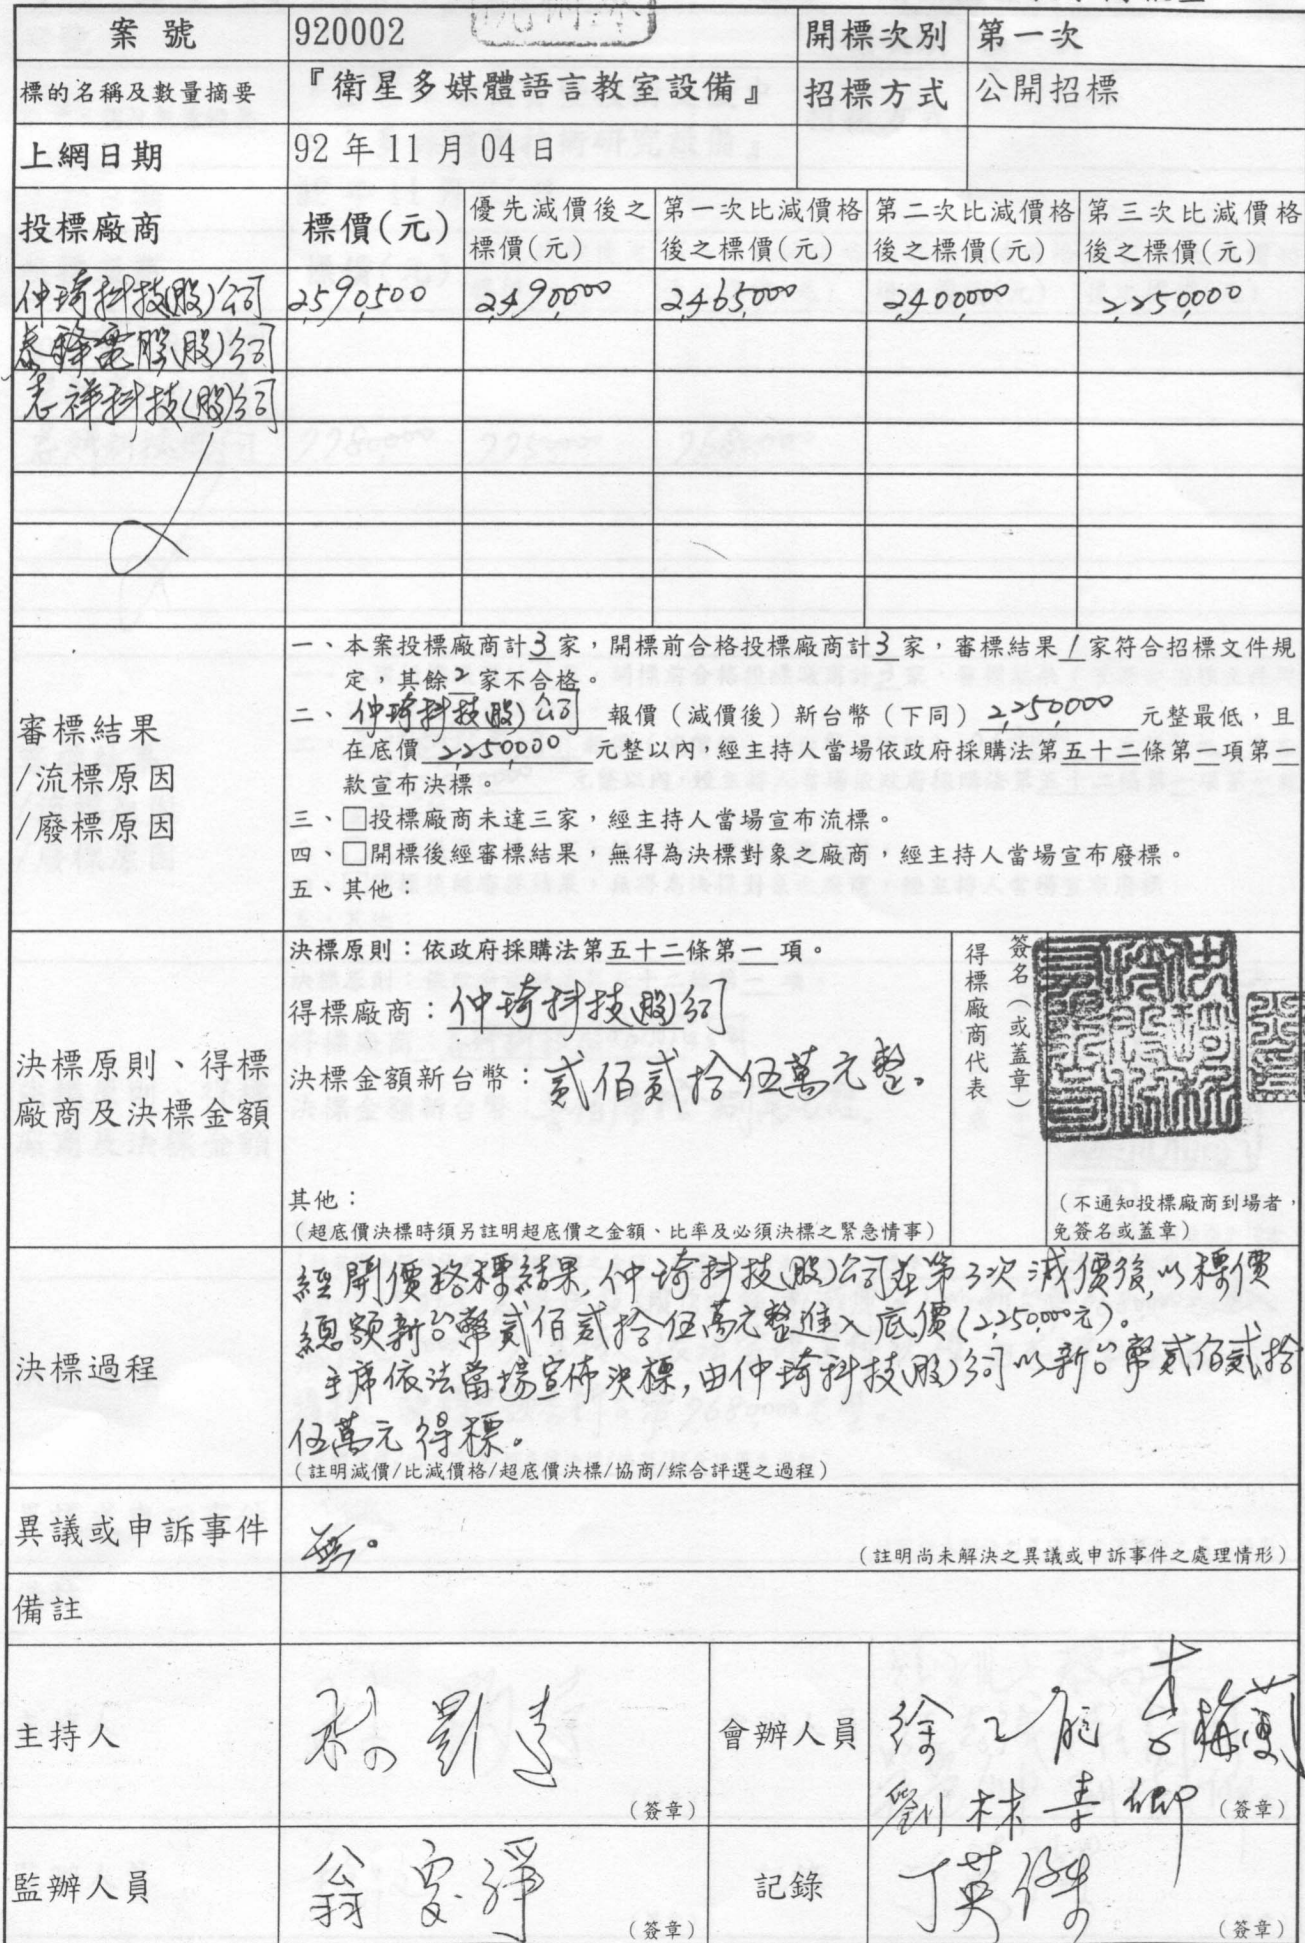 案號 920002 開標次別 第一次
標的名稱及數量摘要 『衛星多媒體語言教室設備』 招標方式 公開招標
上網日期 92 年 11 月 04 日
投標廠商 標價(元) 優先減價後之標價(元) 第一次比減價格後之標價(元) 第二次比減價格後之標價(元) 第三次比減價格後之標價(元)
仲琦科技(股)公司 2,590,500 2,490,000 2,465,000 2,400,000 2,250,000
泰鋒電腦(股)公司
志祥科技(股)公司
審標結果
/流標原因
/廢標原因
一、本案投標廠商計3家,開標前合格投標廠商計3家,審標結果1家符合招標文件規
定,其餘2家不合格。
二、仲琦科技(股)公司 報價(減價後)新台幣(下同)2,250,000 元整最低,且
在底價 2,250,000 元整以內,經主持人當場依政府採購法第五十二條第一項第一
款宣布決標。
三、□投標廠商未達三家,經主持人當場宣布流標。
四、□開標後經審標結果,無得為決標對象之廠商,經主持人當場宣布廢標。
五、其他:
決標原則、得標
廠商及決標金額
決標原則:依政府採購法第五十二條第一項。
得標廠商:仲琦科技(股)公司
決標金額新台幣:貳佰貳拾伍萬元整。
其他:
(超底價決標時須另註明超底價之金額、比率及必須決標之緊急情事)
得標廠商代表
簽名(或蓋章)
(不通知投標廠商到場者,
免簽名或蓋章)
決標過程
經開價格標結果,仲琦科技(股)公司在第3次減價後,以標價
總額新台幣貳佰貳拾伍萬元整進入底價(2,250,000元)。
主席依法當場宣佈決標,由仲琦科技(股)公司以新台幣貳佰貳拾
伍萬元得標。
(註明減價/比減價格/超底價決標/協商/綜合評選之過程)
異議或申訴事件 無。
(註明尚未解決之異議或申訴事件之處理情形)
備註
主持人 (簽章) 會辦人員 劉林素卿 (簽章)
監辦人員 (簽章) 記錄 丁英傑 (簽章)